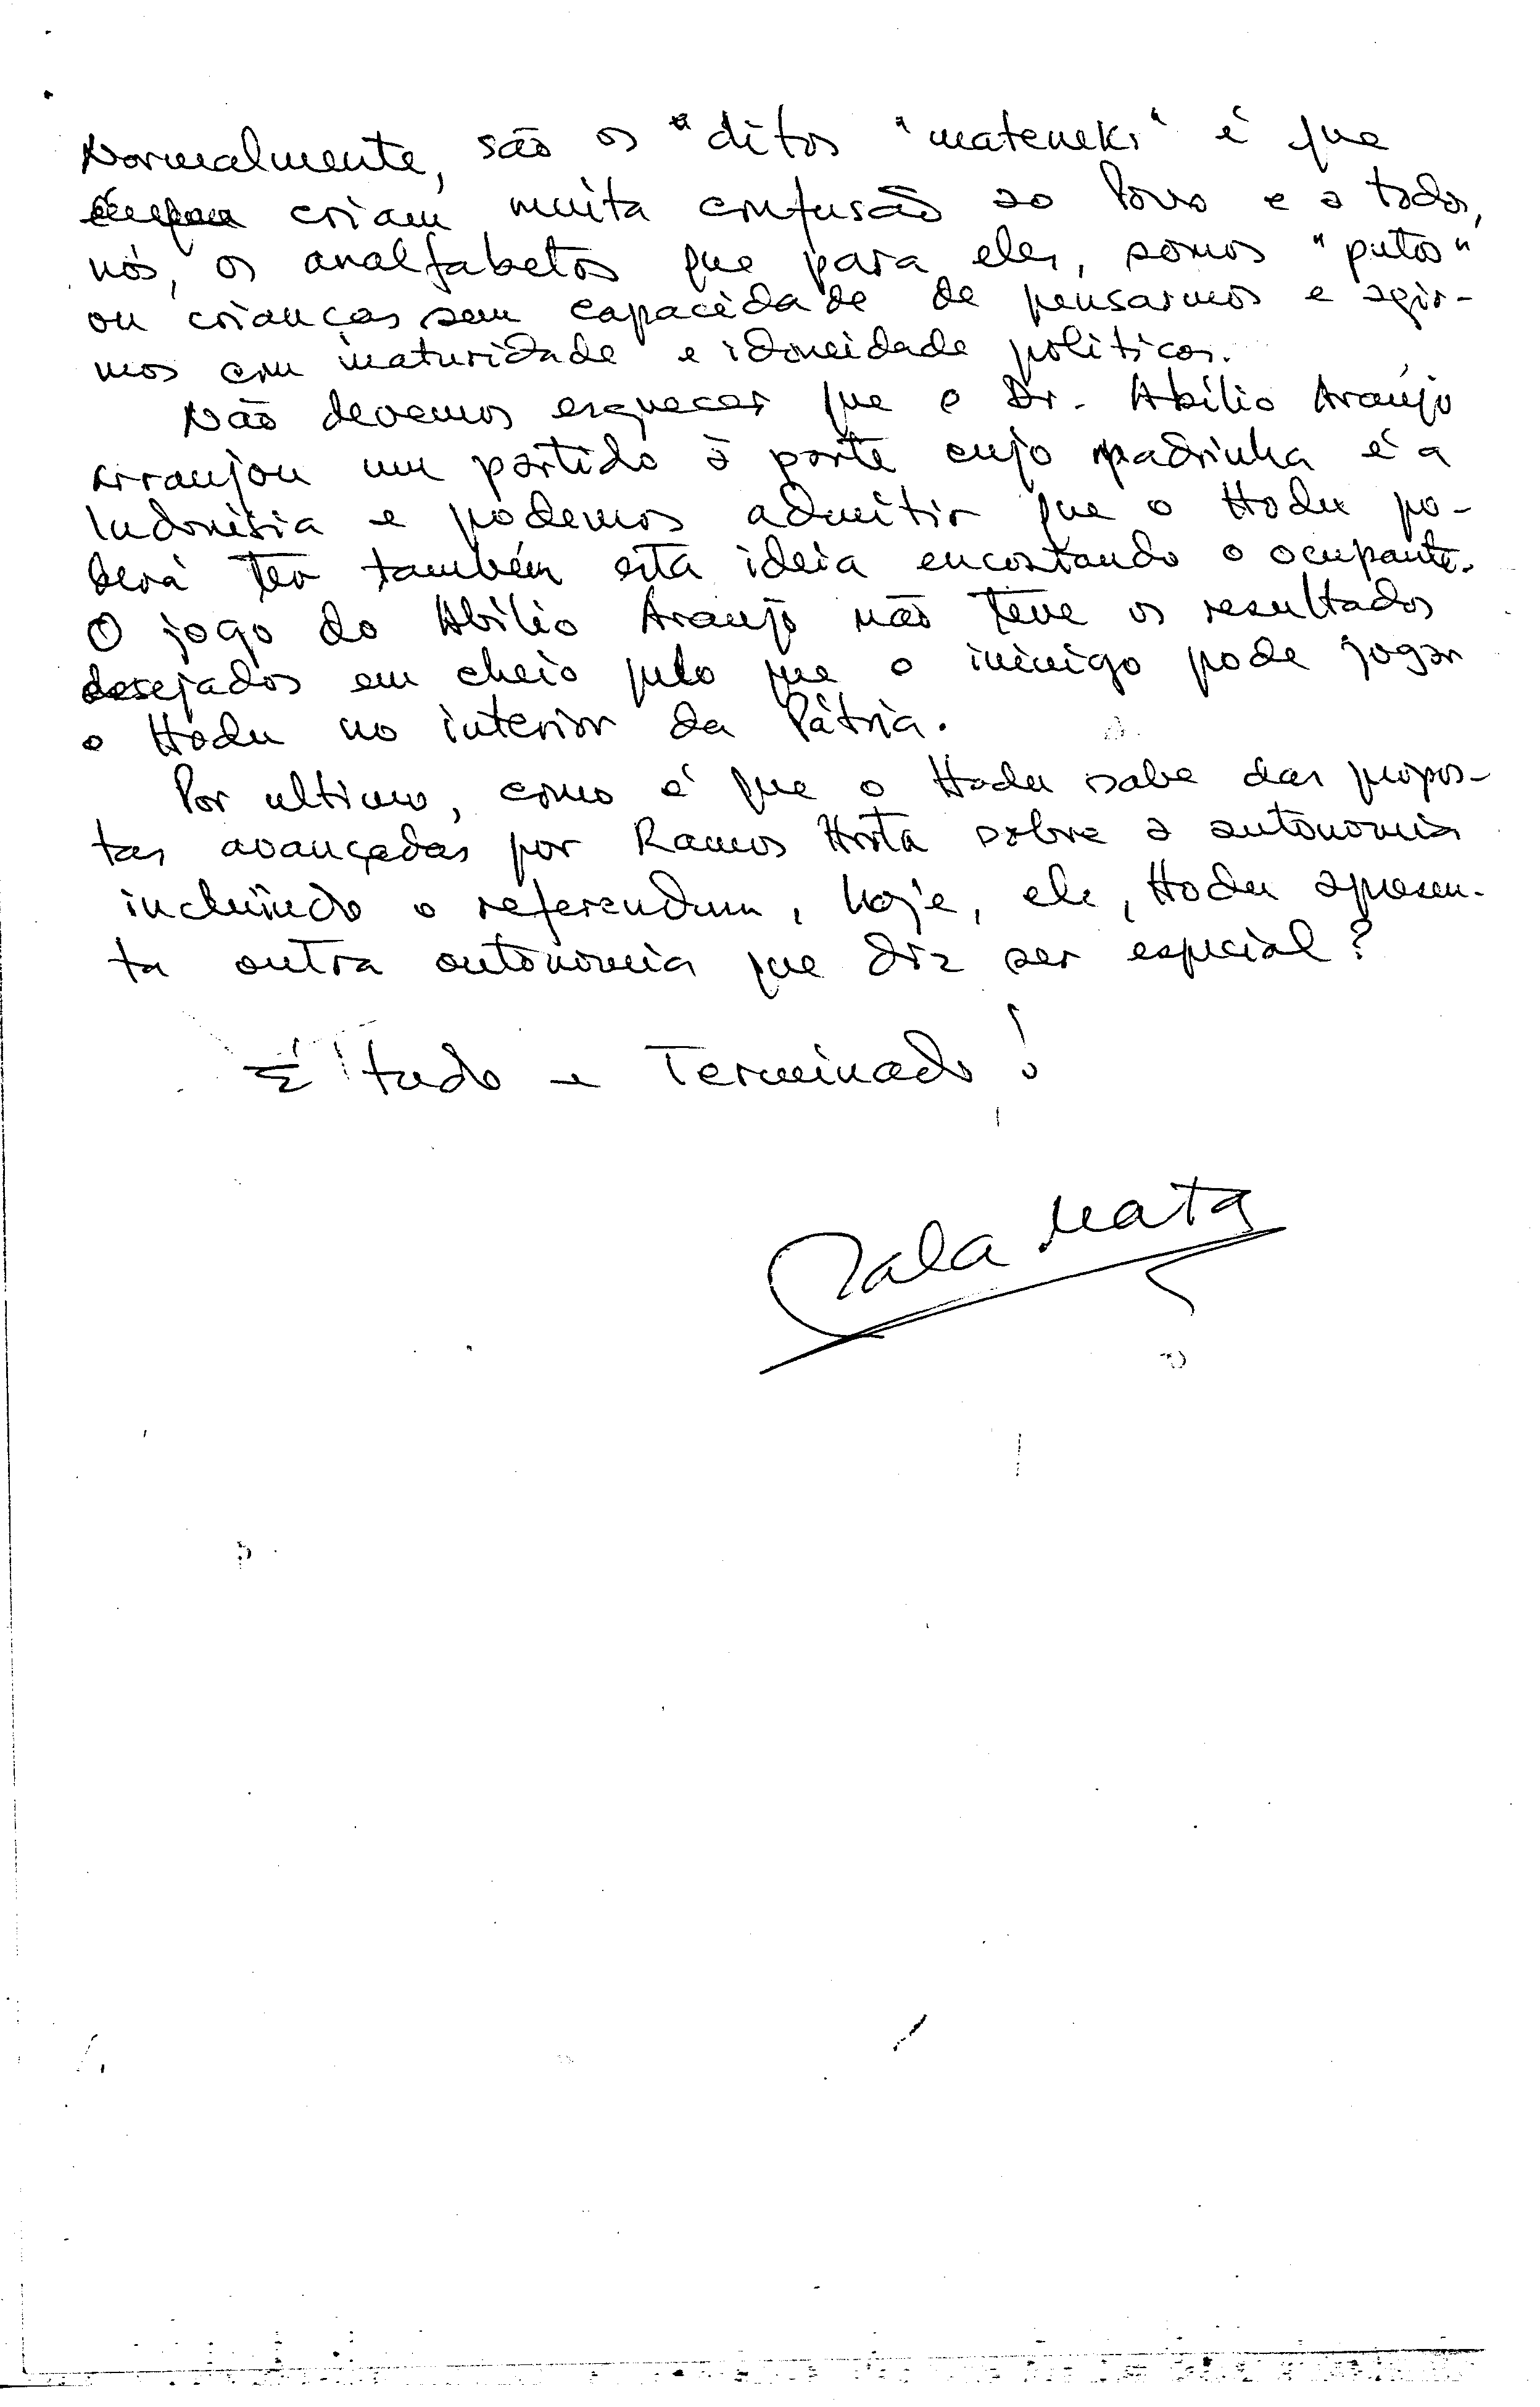 Normalmente, são os "ditos "matenek" é que
criam muita confusão ao Povo e a todos,
nós, os analfabetos que para eles, somos "putos"
ou crianças sem capacidade de pensarmos e agir-
mos com maturidade e idoneidade políticas.
Não devemos esquecer que o Dr. Abílio Araújo
arranjou um partido à parte cujo padrinha é a
Indonésia e podemos admitir que o Hodu po-
derá ter também esta ideia encostando o ocupante.
O jogo do Abílio Araújo não teve os resultados
desejados em cheio pelo que o inimigo pode jogar
o Hodu no interior da Pátria.
Por ultimo, como é que o Hodu sabe das propos-
tas avançadas por Ramos Horta sobre a autonomia
incluíndo o referendum, hoje, ele, Hodu apresen-
ta outra autonomia que diz ser especial?
É tudo e Terminado!
Mata